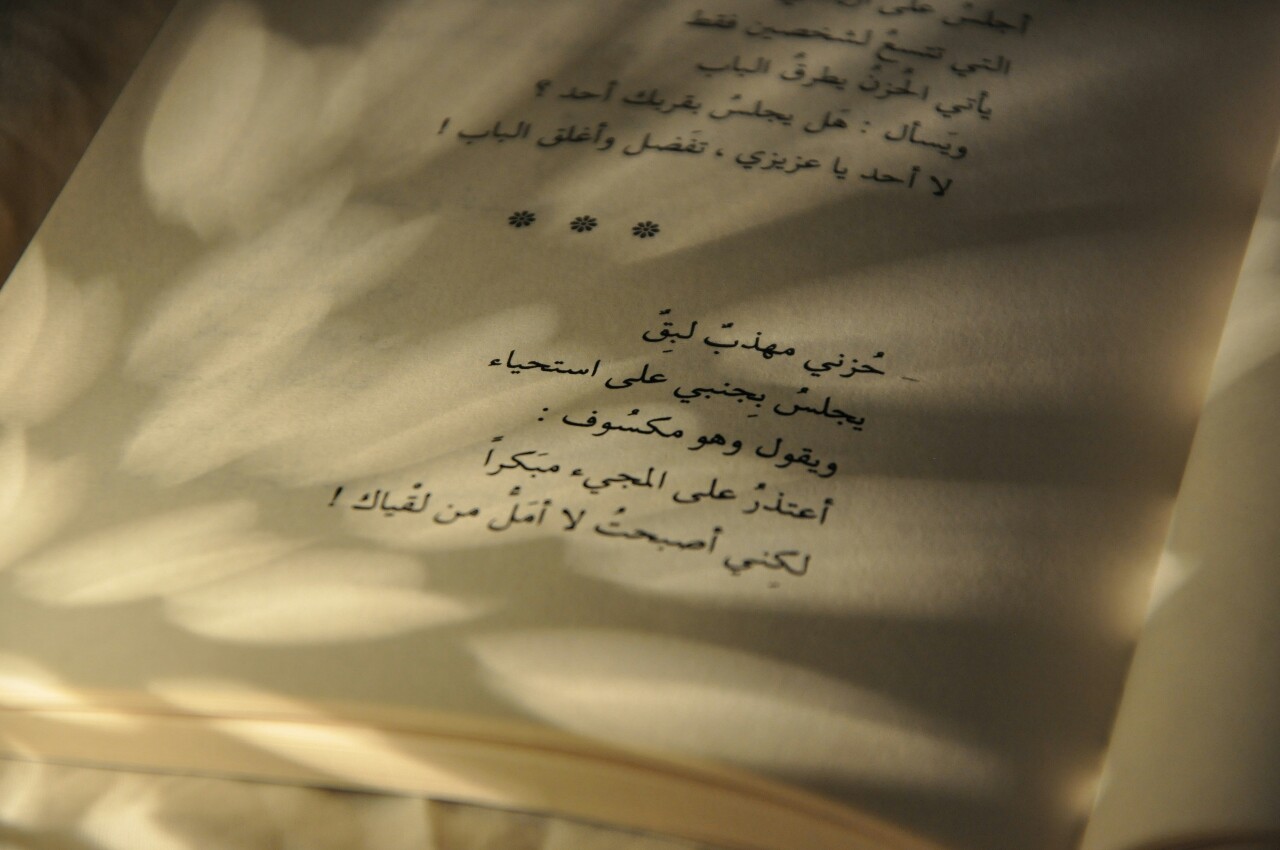 أجلسُ على
التي تتسعُ لشخصين فقط
يأتي الحُزنُ يطرقُ الباب
ويَسأل : هَل يجلسُ بقربك أحد ؟
لا أحد يا عزيزي ، تفَضل وأغلق الباب !
❊ ❊ ❊
- حُزني مهذبٌ لبِقٌ
يجلسُ بِجنبي على استحياء
ويقول وهو مكسُوف :
أعتذرُ على المجيء مبَكراً
لكِنني أصبحتُ لا أمَلْ من لقْياك !